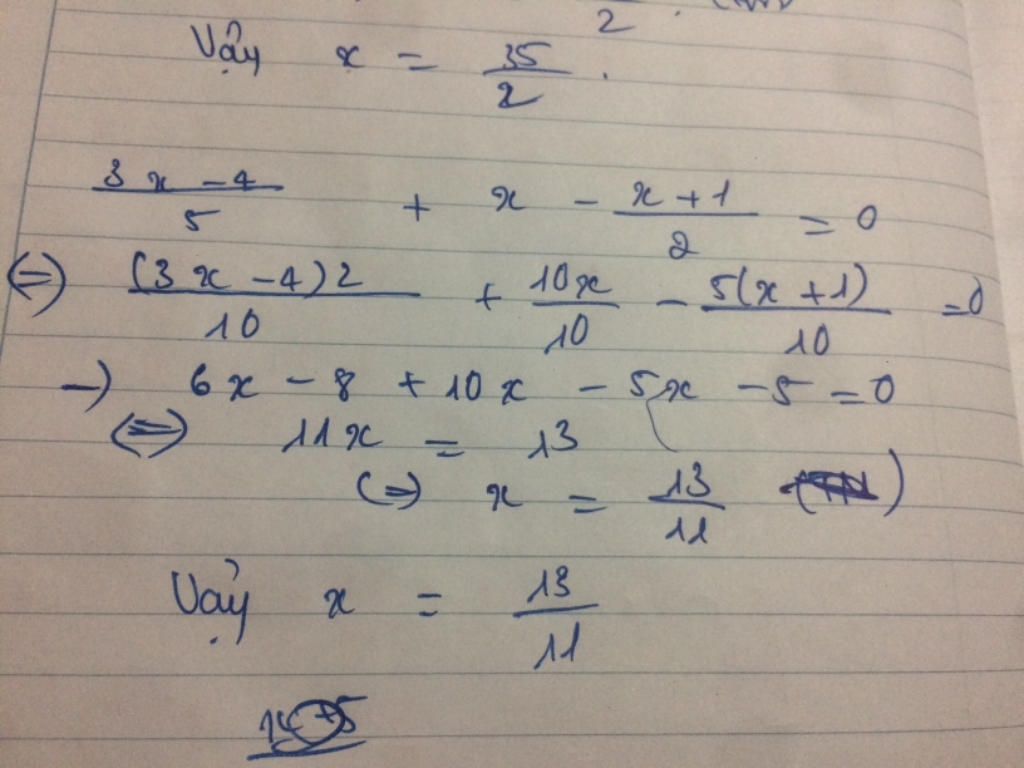 2
Vậy x = 35/2 .
(3x - 4)/5 + x - (x + 1)/2 = 0
(=) (3x - 4)2/10 + 10x/10 - 5(x + 1)/10 = 0
-) 6x - 8 + 10x - 5x - 5 = 0
(=) 11x = 13
(=) x = 13/11
Vậy x = 13/11